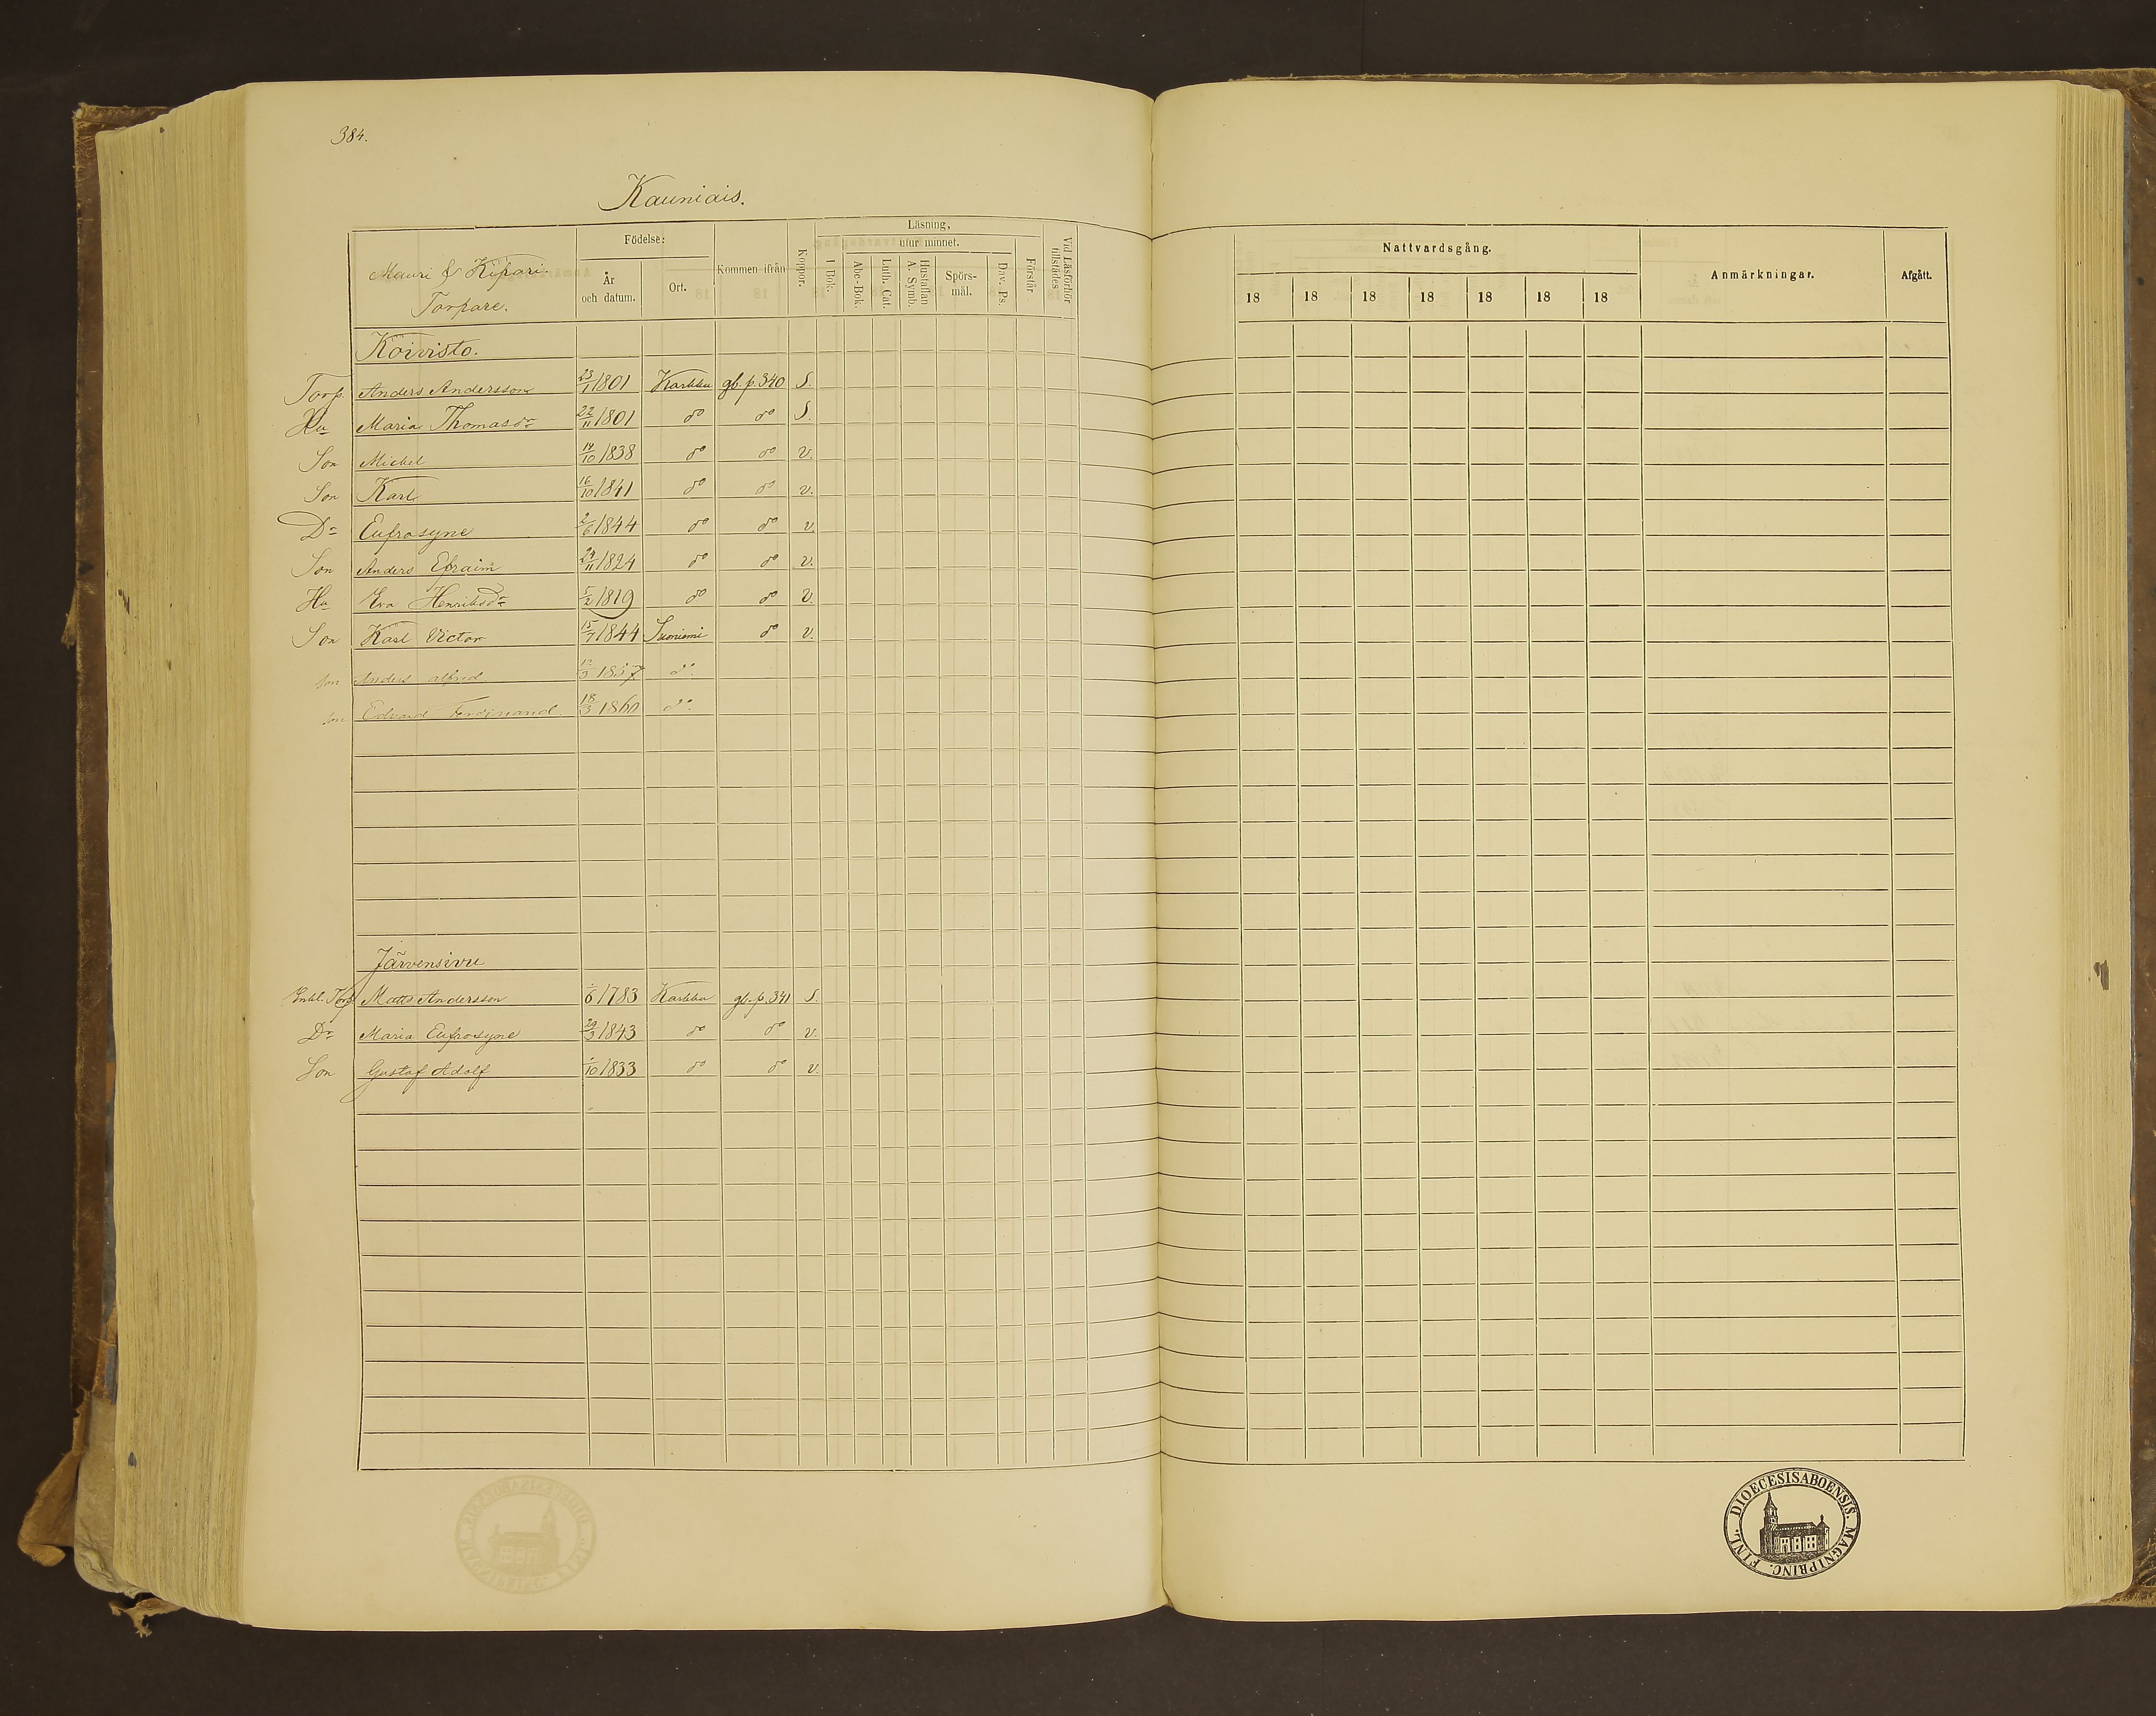 384.
Kauniais.
Mauri & Kipari.
Torpare.
Födelse:
År och datum.
Ort.
Kommen ifrån
Koppor.
Läsning,
utur minnet.
I Bok.
Abc-Bok.
Luth. Cat.
Hustaflan A. Symb.
Spörs-mål.
Dav. Ps.
Förstår
Vid Läsförhör tillstädes
Nattvardsgång.
18 18 18 18 18 18 18
Anmärkningar.
Afgått.
Koivisto.
Torp. Anders Andersson 23/1 1801 Karkku gb. p. 340 S.
Hu Maria Thomasdr 22/11 1801 do do S.
Son Michel 14/10 1838 do do v.
Son Karl 16/10 1841 do do v.
Dr Eufrosyne 2/6 1844 do do v.
Son Anders Efraim 24/11 1824 do do v.
Hu Eva Henriksdr 5/2 1819 do do v.
Son Karl Victor 15/7 1844 Suoniemi do v.
son Anders alfred 1857 do.
son Edvard Ferdinand. 18/3 1860 do.
Järvensivu
Enkl. Torp. Matts Andersson 6/1783 Karkku gb. p. 341 S.
Dr Maria Eufrosyne 29/3 1843 do do v.
Son Gustaf Adolf 10/1833 do do v.
DIOECESISABOENSIS. MAGNIPRINC. FINL.